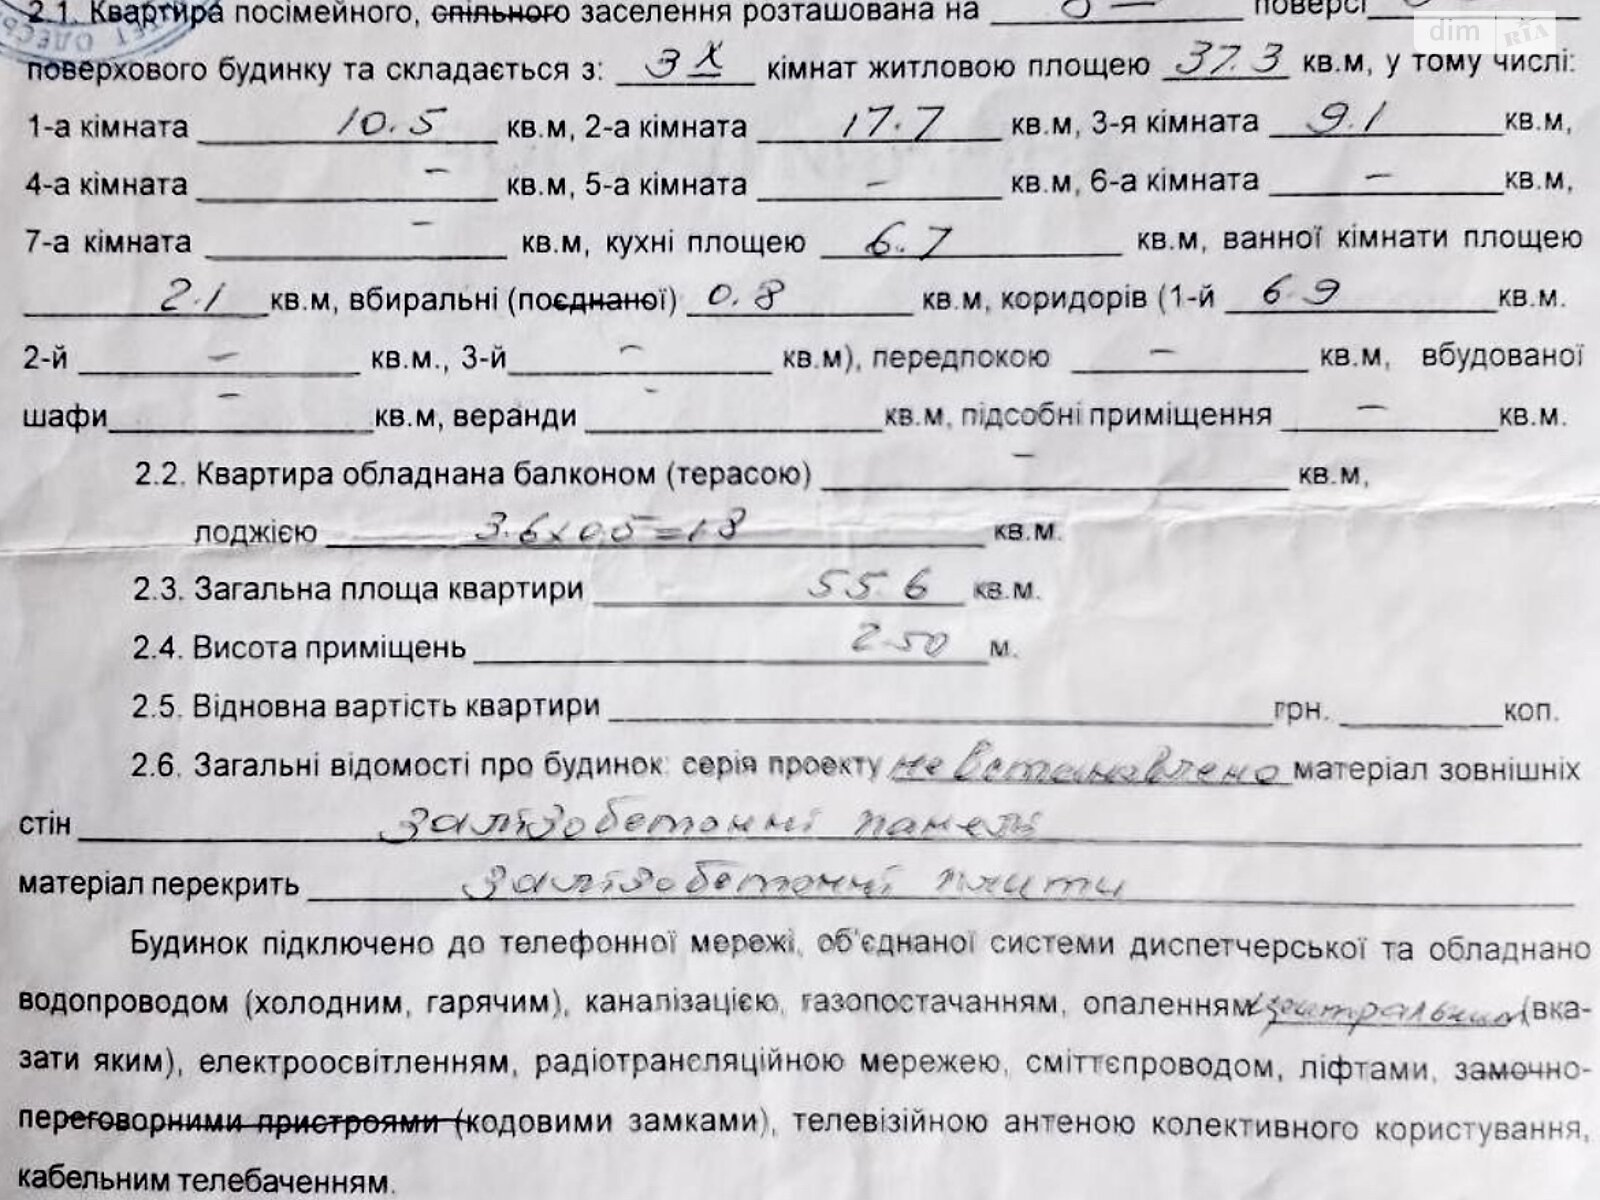 2.1. Квартира посімейного, спільного заселення розташована на поверсі
dim RIA
поверхового будинку та складається з: 3х кімнат житловою площею 37.3 кв.м, у тому числі:
1-а кімната 10.5 кв.м, 2-а кімната 17.7 кв.м, 3-я кімната 9.1 кв.м,
4-а кімната – кв.м, 5-а кімната – кв.м, 6-а кімната – кв.м,
7-а кімната – кв.м, кухні площею 6.7 кв.м, ванної кімнати площею
2.1 кв.м, вбиральні (поєднаної) 0.8 кв.м, коридорів (1-й 6.9 кв.м.
2-й – кв.м., 3-й – кв.м), передпокою – кв.м, вбудованої
шафи – кв.м, веранди – кв.м, підсобні приміщення – кв.м.
2.2. Квартира обладнана балконом (терасою) – кв.м,
лоджією 3.6x0.5=1.8 кв.м.
2.3. Загальна площа квартири 55.6 кв.м.
2.4. Висота приміщень 2.50 м.
2.5. Відновна вартість квартири грн. коп.
2.6. Загальні відомості про будинок: серія проекту не встановлено матеріал зовнішніх
стін залізобетонні панелі
матеріал перекрить залізобетонні плити
Будинок підключено до телефонної мережі, об'єднаної системи диспетчерської та обладнано
водопроводом (холодним, гарячим), каналізацією, газопостачанням, опаленням центральним (вка-
зати яким), електроосвітленням, радіотрансляційною мережею, сміттєпроводом, ліфтами, замочно-
переговорними пристроями (кодовими замками), телевізійною антеною колективного користування,
кабельним телебаченням.